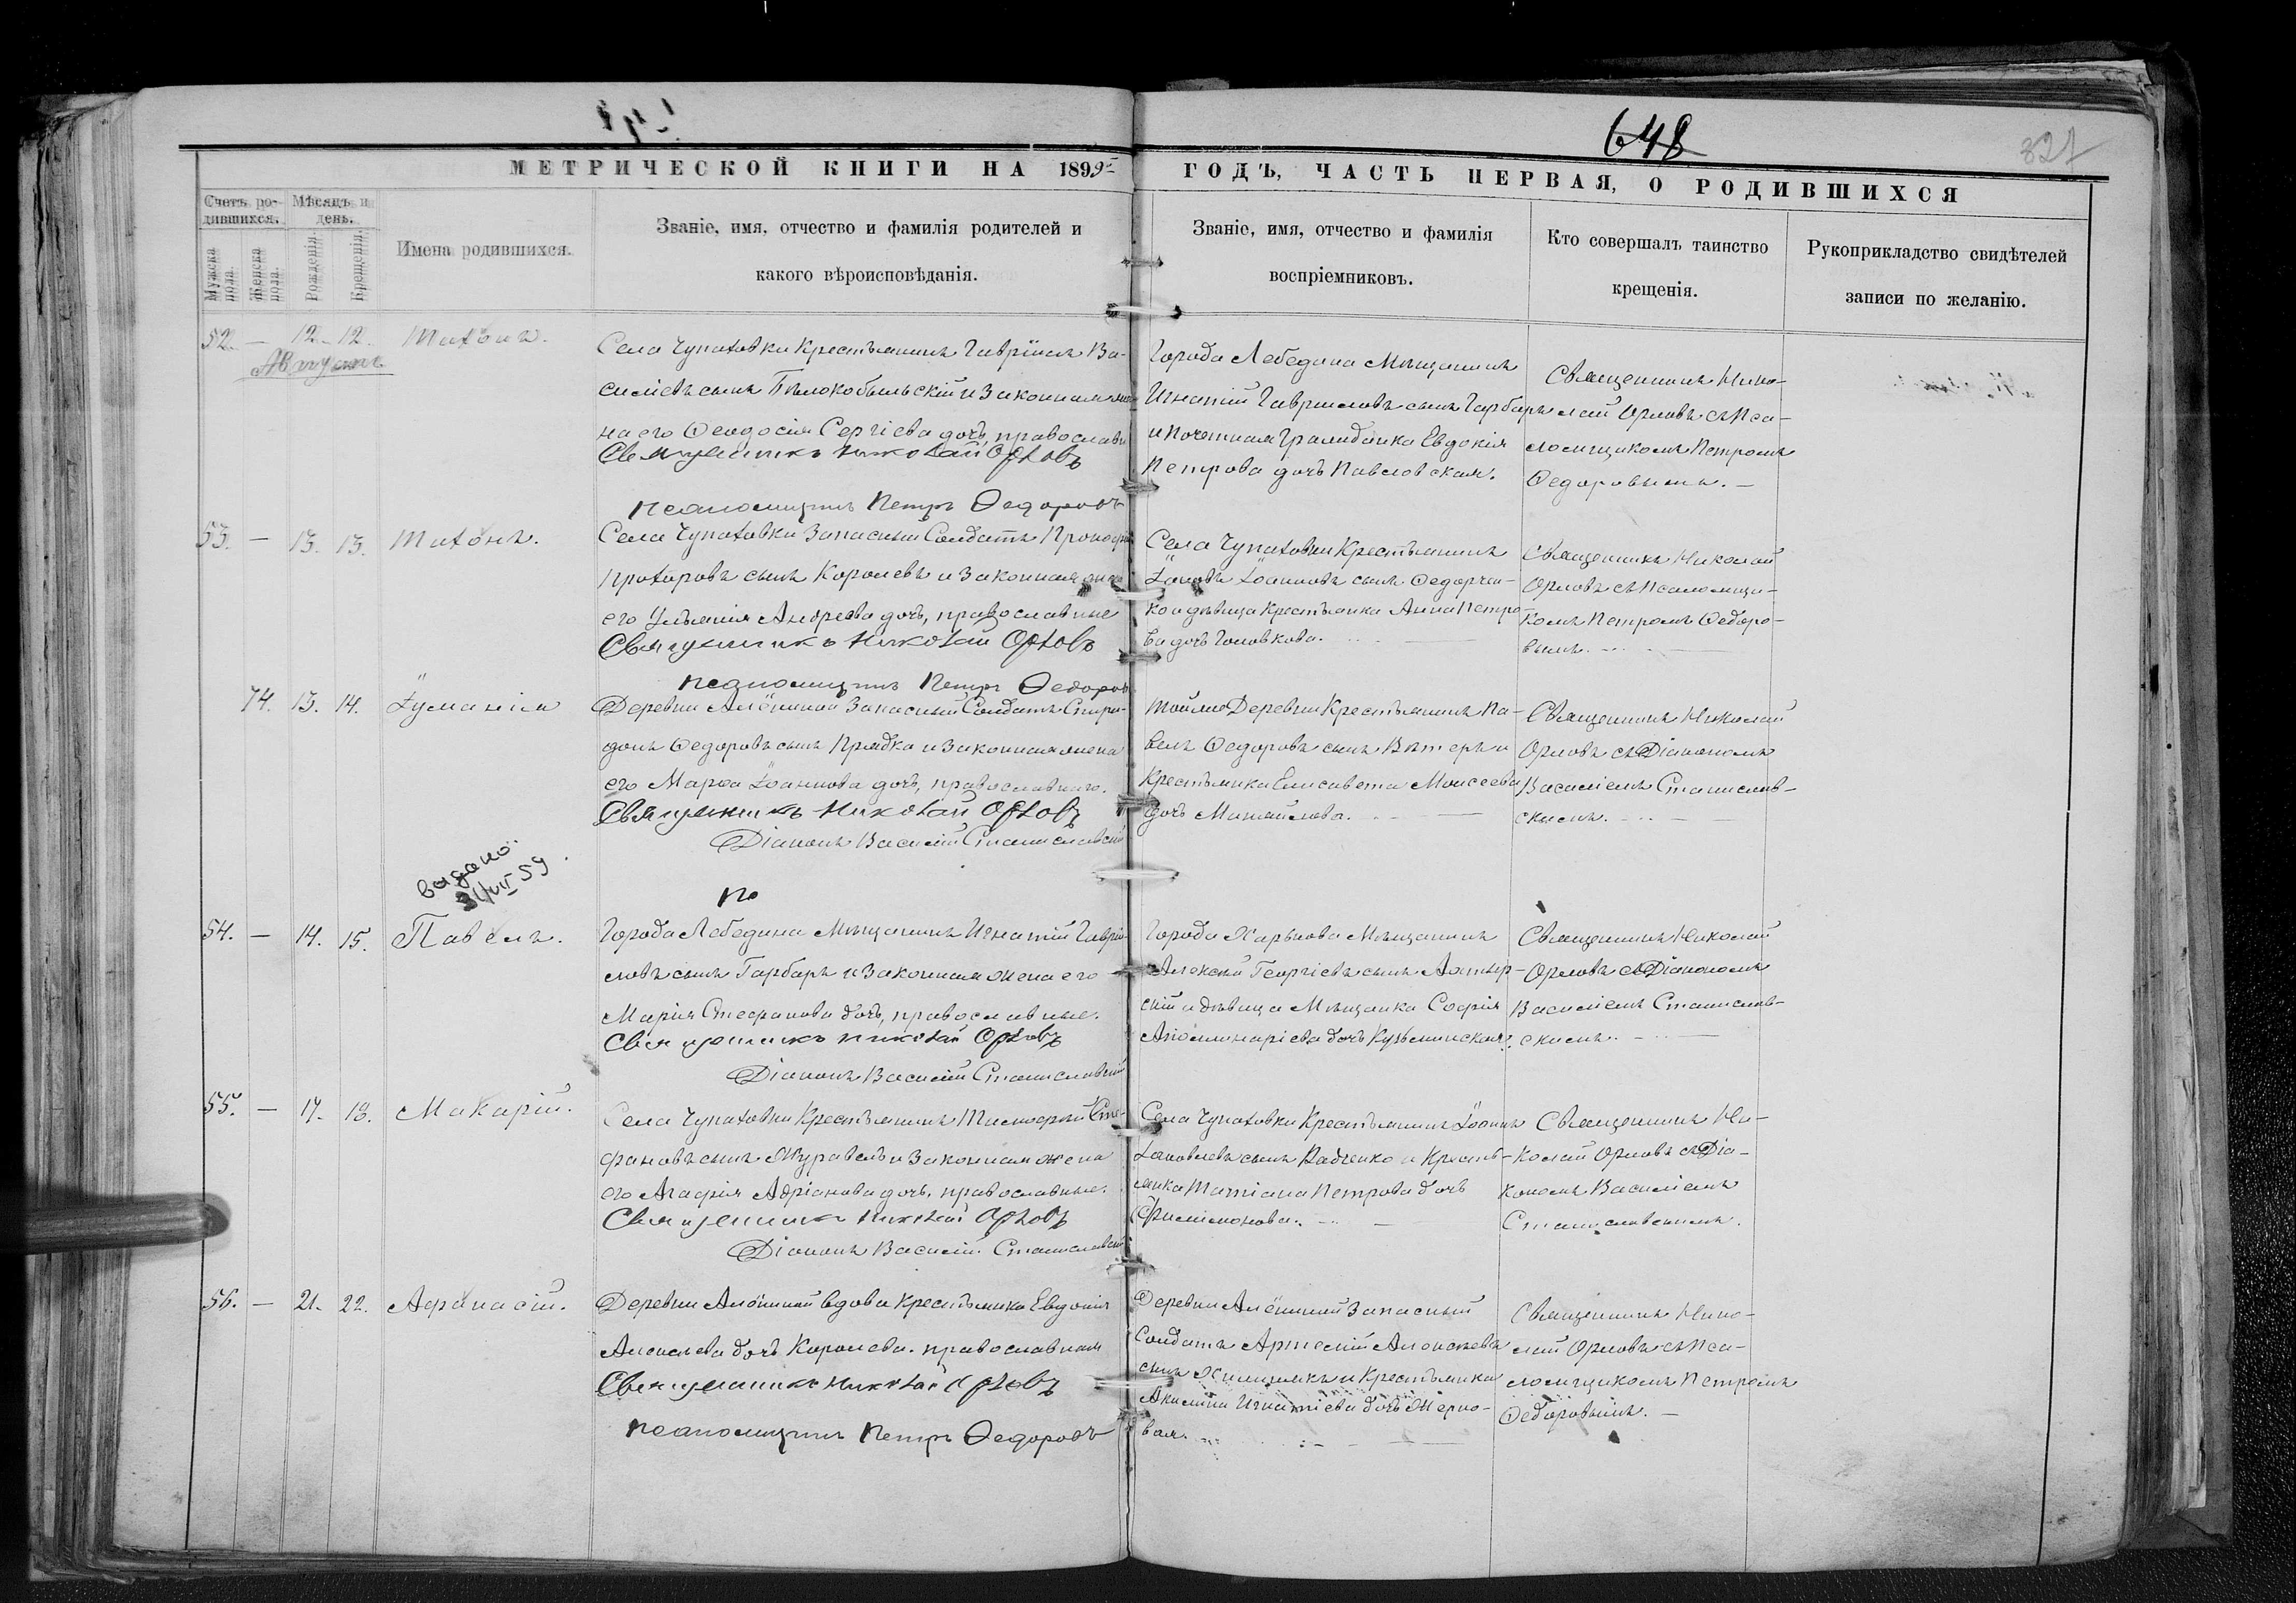 648
327
МЕТРИЧЕСКОЙ КНИГИ НА 1899
ГОДЪ, ЧАСТЬ ПЕРВАЯ, О РОДИВШИХСЯ
Счетъ ро-
дившихся.
Мужска
пола.
Женска
пола.
Мѣсяцъ и
день.
Рожденія.
Крещенія.
Имена родившихся.
Званіе, имя, отчество и фамилія родителей и
какого вѣроисповѣданія.
Званіе, имя, отчество и фамилія
воспріемниковъ.
Кто совершалъ таинство
крещенія.
Рукоприкладство свидѣтелей
записи по желанію.
52. — 12. 12. Тихонъ.
Августъ
Села Чупаховки Крестьянинъ Гавріилъ Ва-
силіевъ сынъ Бѣлокобыльскій и законная же-
на его Ѳеодосія Сергіева дочь, православн
Священникъ Николай Орловъ
Псаломщикъ Петръ Ѳедоровъ
Города Лебедина Мѣщанинъ
Игнатій Гавриловъ сынъ Гарбарь
и почетная гражданка Евдокія
Петрова дочь Павловская.
Священникъ Нико-
лай Орловъ съ Пса-
ломщикомъ Петромъ
Ѳедоровымъ. —
53. — 13. 13. Тихонъ.
Села Чупаховки Запасный Солдатъ Прокофій
Прохоровъ сынъ Королевъ и законная жена
его Ульянія Андреева дочь, православные
Священникъ Николай Орловъ
Псаломщикъ Петръ Ѳедоровъ
Села Чупаховки Крестьянинъ
Іаковъ Іоанновъ сынъ Ѳедорчен-
ко и дѣвица крестьянка Анна Петро-
ва дочь Головкова.
Священникъ Николай
Орловъ съ Псаломщи-
комъ Петромъ Ѳедоро-
вымъ.
74. 13. 14. Іуліанія
Деревни Алёшиной Запасный Солдатъ Спири-
донъ Ѳедоровъ сынъ Прядка и законная жена
его Марѳа Іоаннова дочь, православного.
Священникъ Николай Орловъ
Діаконъ Василій Станиславскій
Той же Деревни Крестьянинъ Па-
велъ Ѳедоровъ сынъ Вѣтеръ и
Крестьянка Елисавета Моисеева
дочь Михайлова.
Священникъ Николай
Орловъ съ Діакономъ
Василіемъ Станислав-
скимъ.
выдано
31/VII 59
54. — 14. 15. Павелъ.
Города Лебедина Мѣщанинъ Игнатій Гаврі-
ловъ сынъ Гарбарь и законная жена его
Марія Стефанова дочь, православные.
Священникъ Николай Орловъ
Діаконъ Василій Станиславскій
Города Харькова Мѣщанинъ
Алексѣй Георгіевъ сынъ Ахтыр-
скій и дѣвица Мѣщанка Софія
Аполлинаріева дочь Кузьминская.
Священникъ Николай
Орловъ съ Діакономъ
Василіемъ Станислав-
скимъ.
55. — 17. 18. Макарій.
Села Чупаховки Крестьянинъ Тимоѳей Сте-
фановъ сынъ Журавель и законная жена
его Агафія Адріанова дочь, православные.
Священникъ Николай Орловъ
Діаконъ Василій Станиславскій
Села Чупаховки Крестьянинъ Іоаннъ
Іаковлевъ сынъ Рабченко и Кресть-
янка Татіана Петрова дочь
Филимонова.
Священникъ Ни-
колай Орловъ съ Діа-
кономъ Василіемъ
Станиславскимъ.
56. — 21. 22. Аѳанасій.
Деревни Алёшиной вдова крестьянка Евдокія
Алексѣева дочь Королева. православная
Священникъ Николай Орловъ
Псаломщикъ Петръ Ѳедоровъ
Деревни Алёшиной Запасный
Солдатъ Артемій Алексѣевъ
сынъ и Крестьянка
Акилина Игнатіева дочь Жерно-
вая.
Священникъ Нико-
лай Орловъ съ Пса-
ломщикомъ Петромъ
Ѳедоровымъ. —